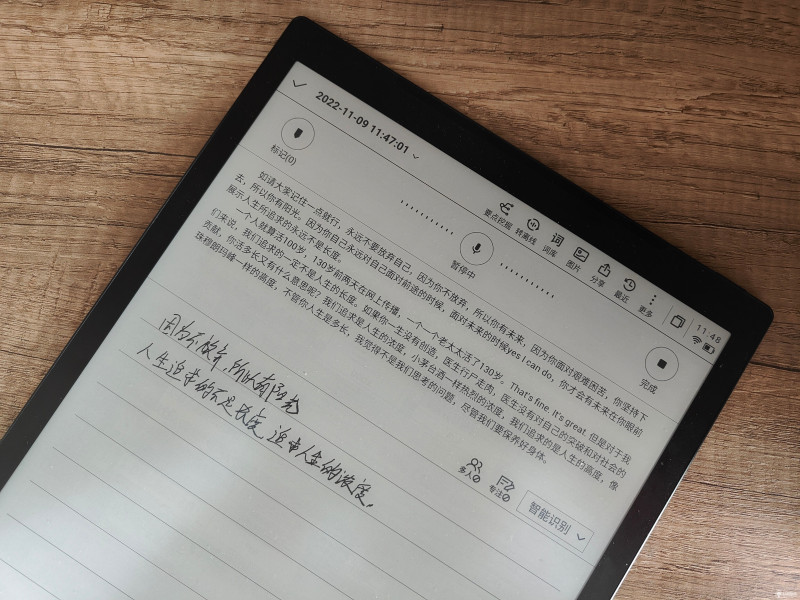 11:48
2022-11-09 11:47:01
要点挖掘 转离线 词库 图片 分享 最近 更多
标记(0)
暂停中
完成
如请大家记住一点就行，永远不要放弃自己，因为你不放弃，所以你有未来，因为你面对艰难困苦，你坚持下
去，所以你有阳光。因为你自己永远对自己面对前途的时候，面对未来的时候yes I can do，你才会有未来在你眼前
展示人生所追求的永远不是长度。
一个人就算活100岁，130岁前两天在网上传播，一个一个老太太活了130岁。That's fine. It's great. 但是对于我
们来说，我们追求的一定不是人生的长度。如果你一生没有创造，医生行尸走肉，医生没有对自己的突破和对社会的
贡献，你活多长又有什么意思呢？我们追求是人生的浓度，小茅台酒一样热烈的浓度，我们追求的是人生的高度，像
珠穆朗玛峰一样的高度，不管你人生是多长，我觉得不是我们思考的问题，尽管我们要保养好身体。
多人 专注
智能识别
因为不放弃，所以有阳光
人生追求的不是长度，追求人生的浓度，